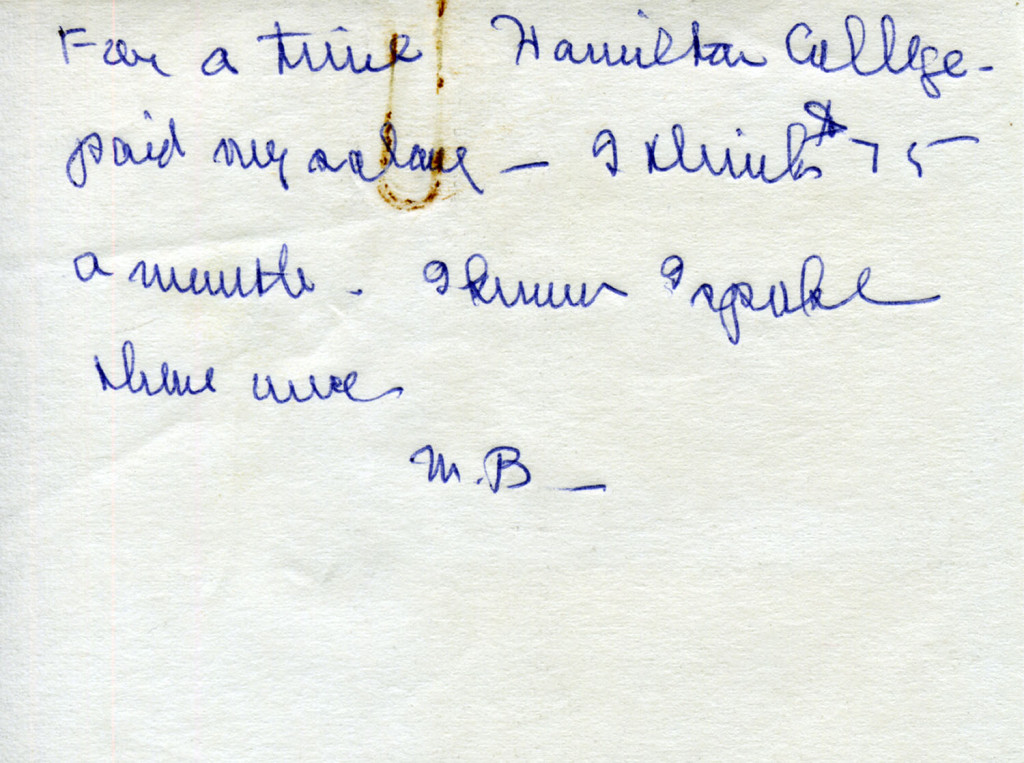 For a time Hamilton College -
paid my salary — I think $75 —
a month - I know I spoke
there once.
M.B —